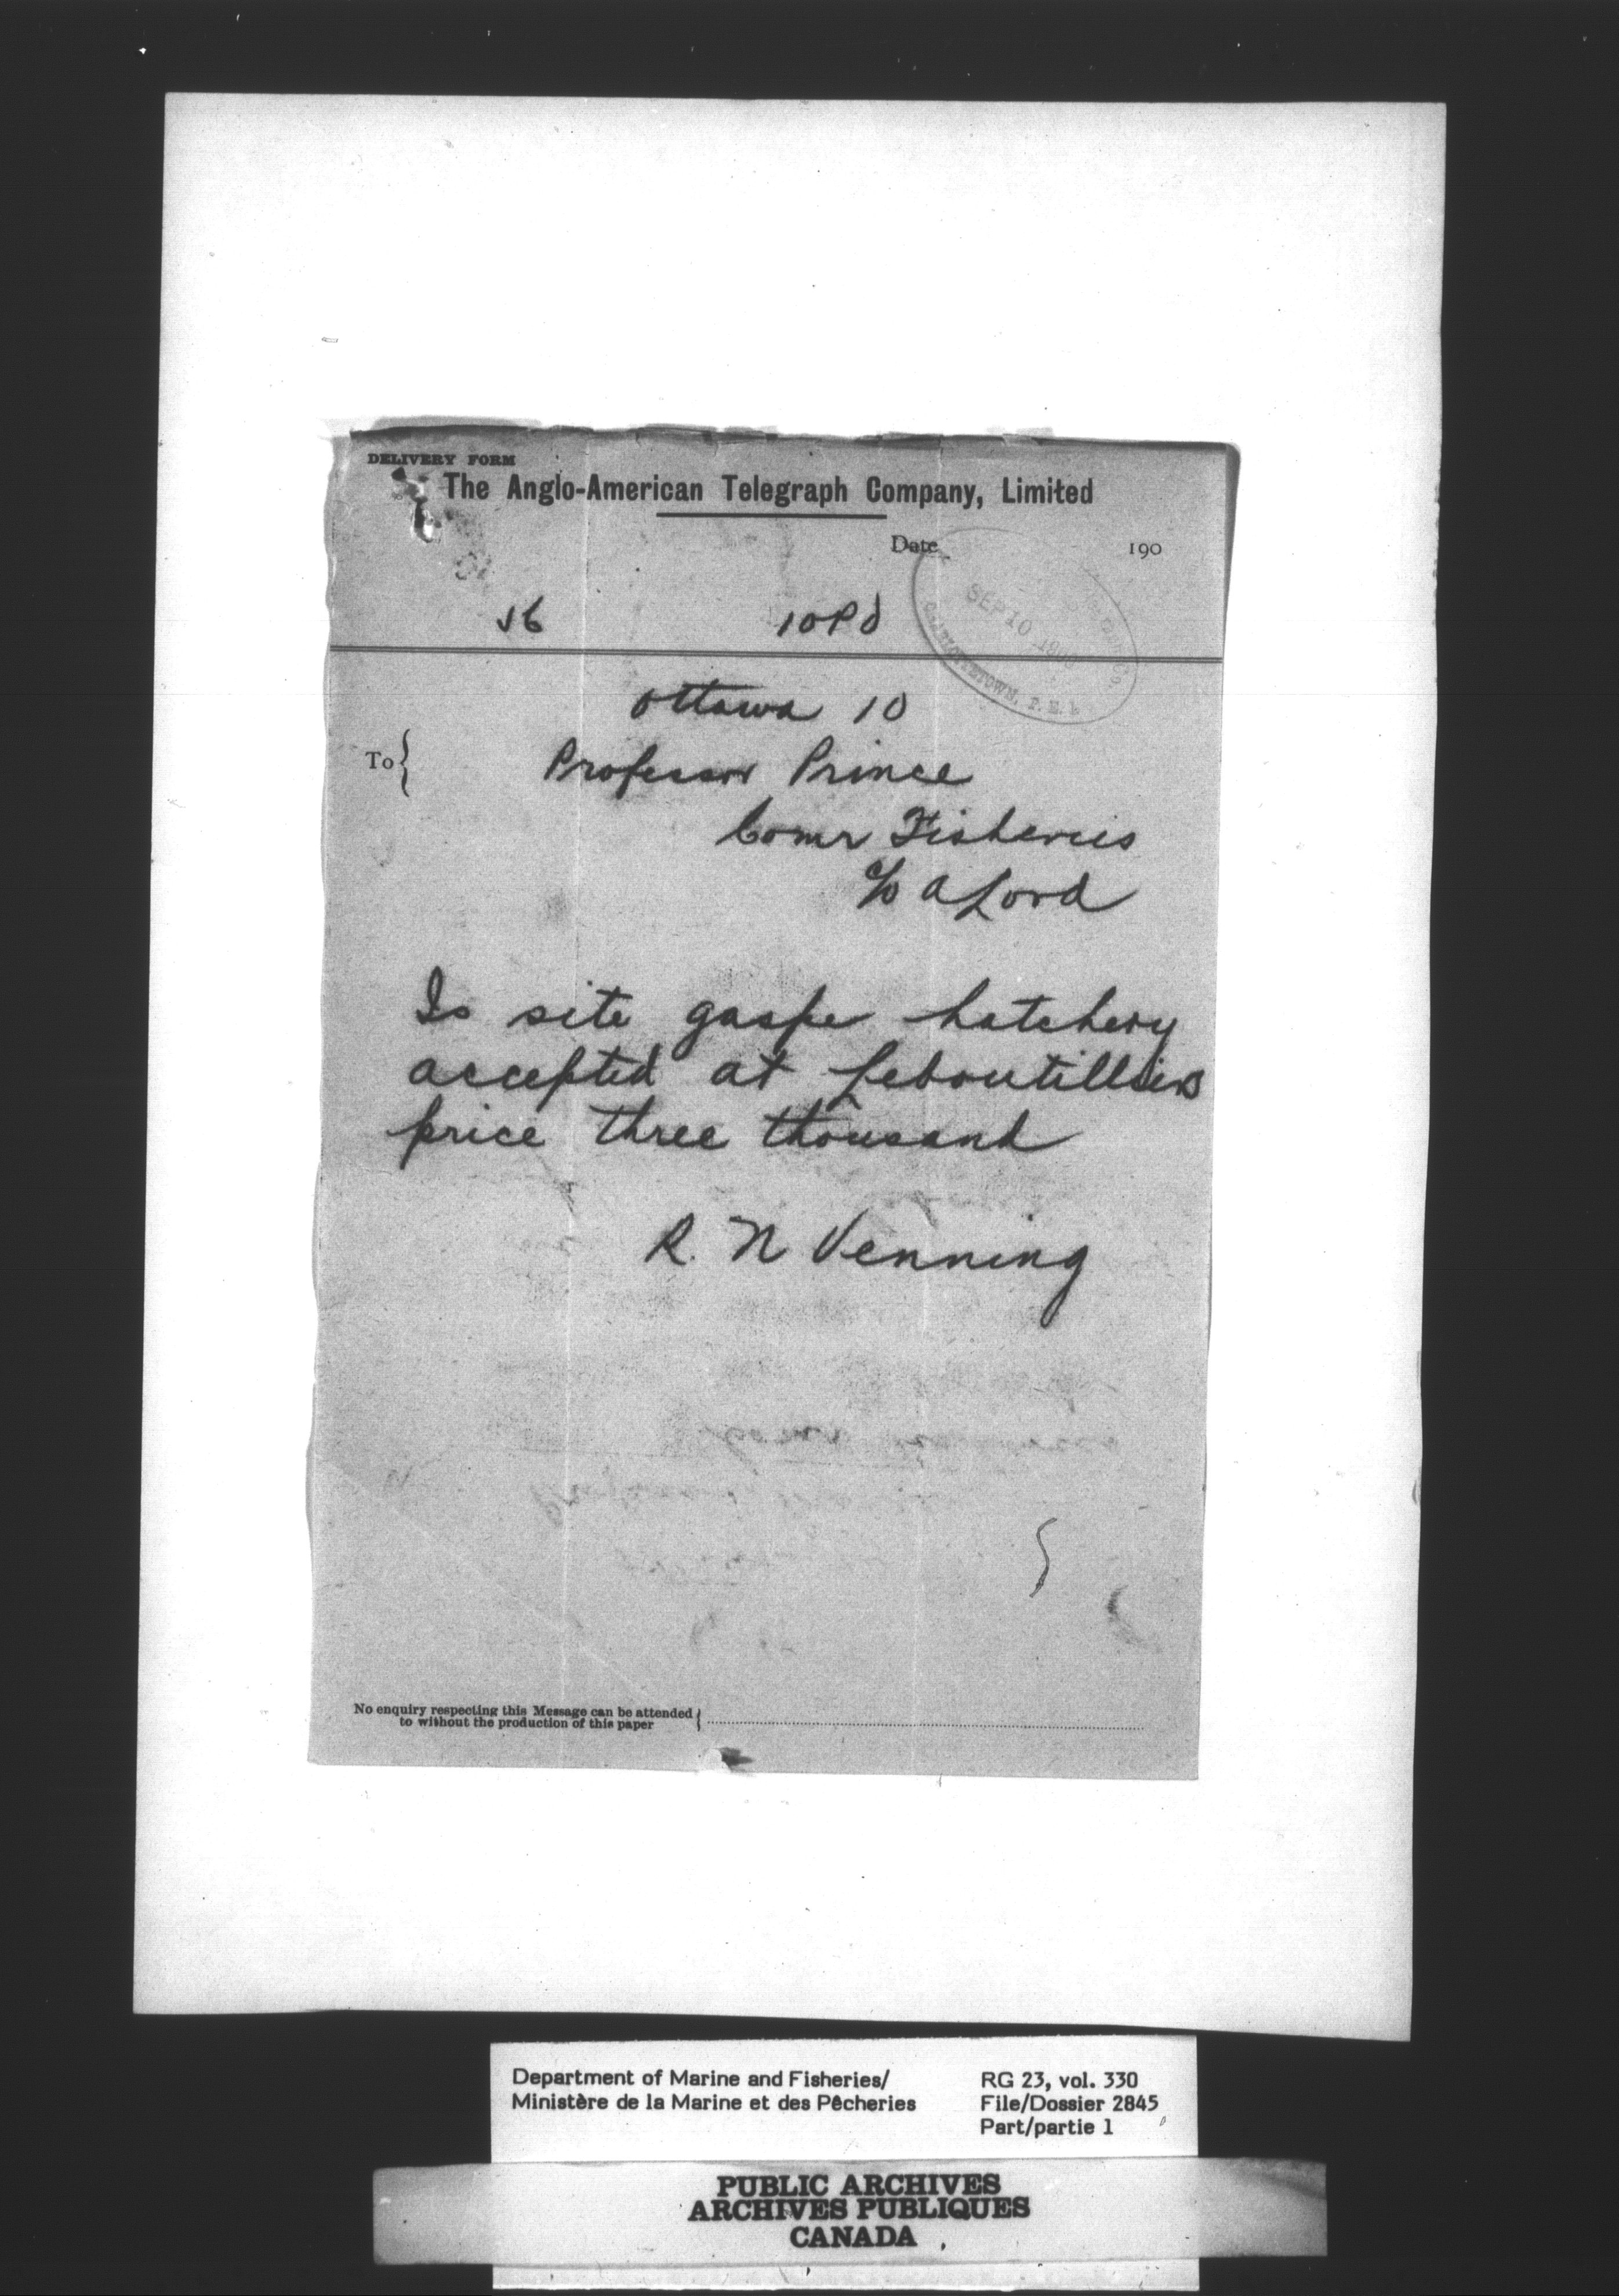 DELIVERY FORM
The Anglo-American Telegraph Company, Limited
Date 190
SEP 10
CHARLOTTETOWN, P. E. I.
10 Pd
Ottawa 10
To Professor Prince
Comr Fisheries
c/o A Lord
Is site gaspe hatchery
accepted at Leboutilliers
price three thousand
R. N Venning
No enquiry respecting this Message can be attended
to without the production of this paper
Department of Marine and Fisheries/
Ministère de la Marine et des Pêcheries
RG 23, vol. 330
File/Dossier 2845
Part/partie 1
PUBLIC ARCHIVES
ARCHIVES PUBLIQUES
CANADA